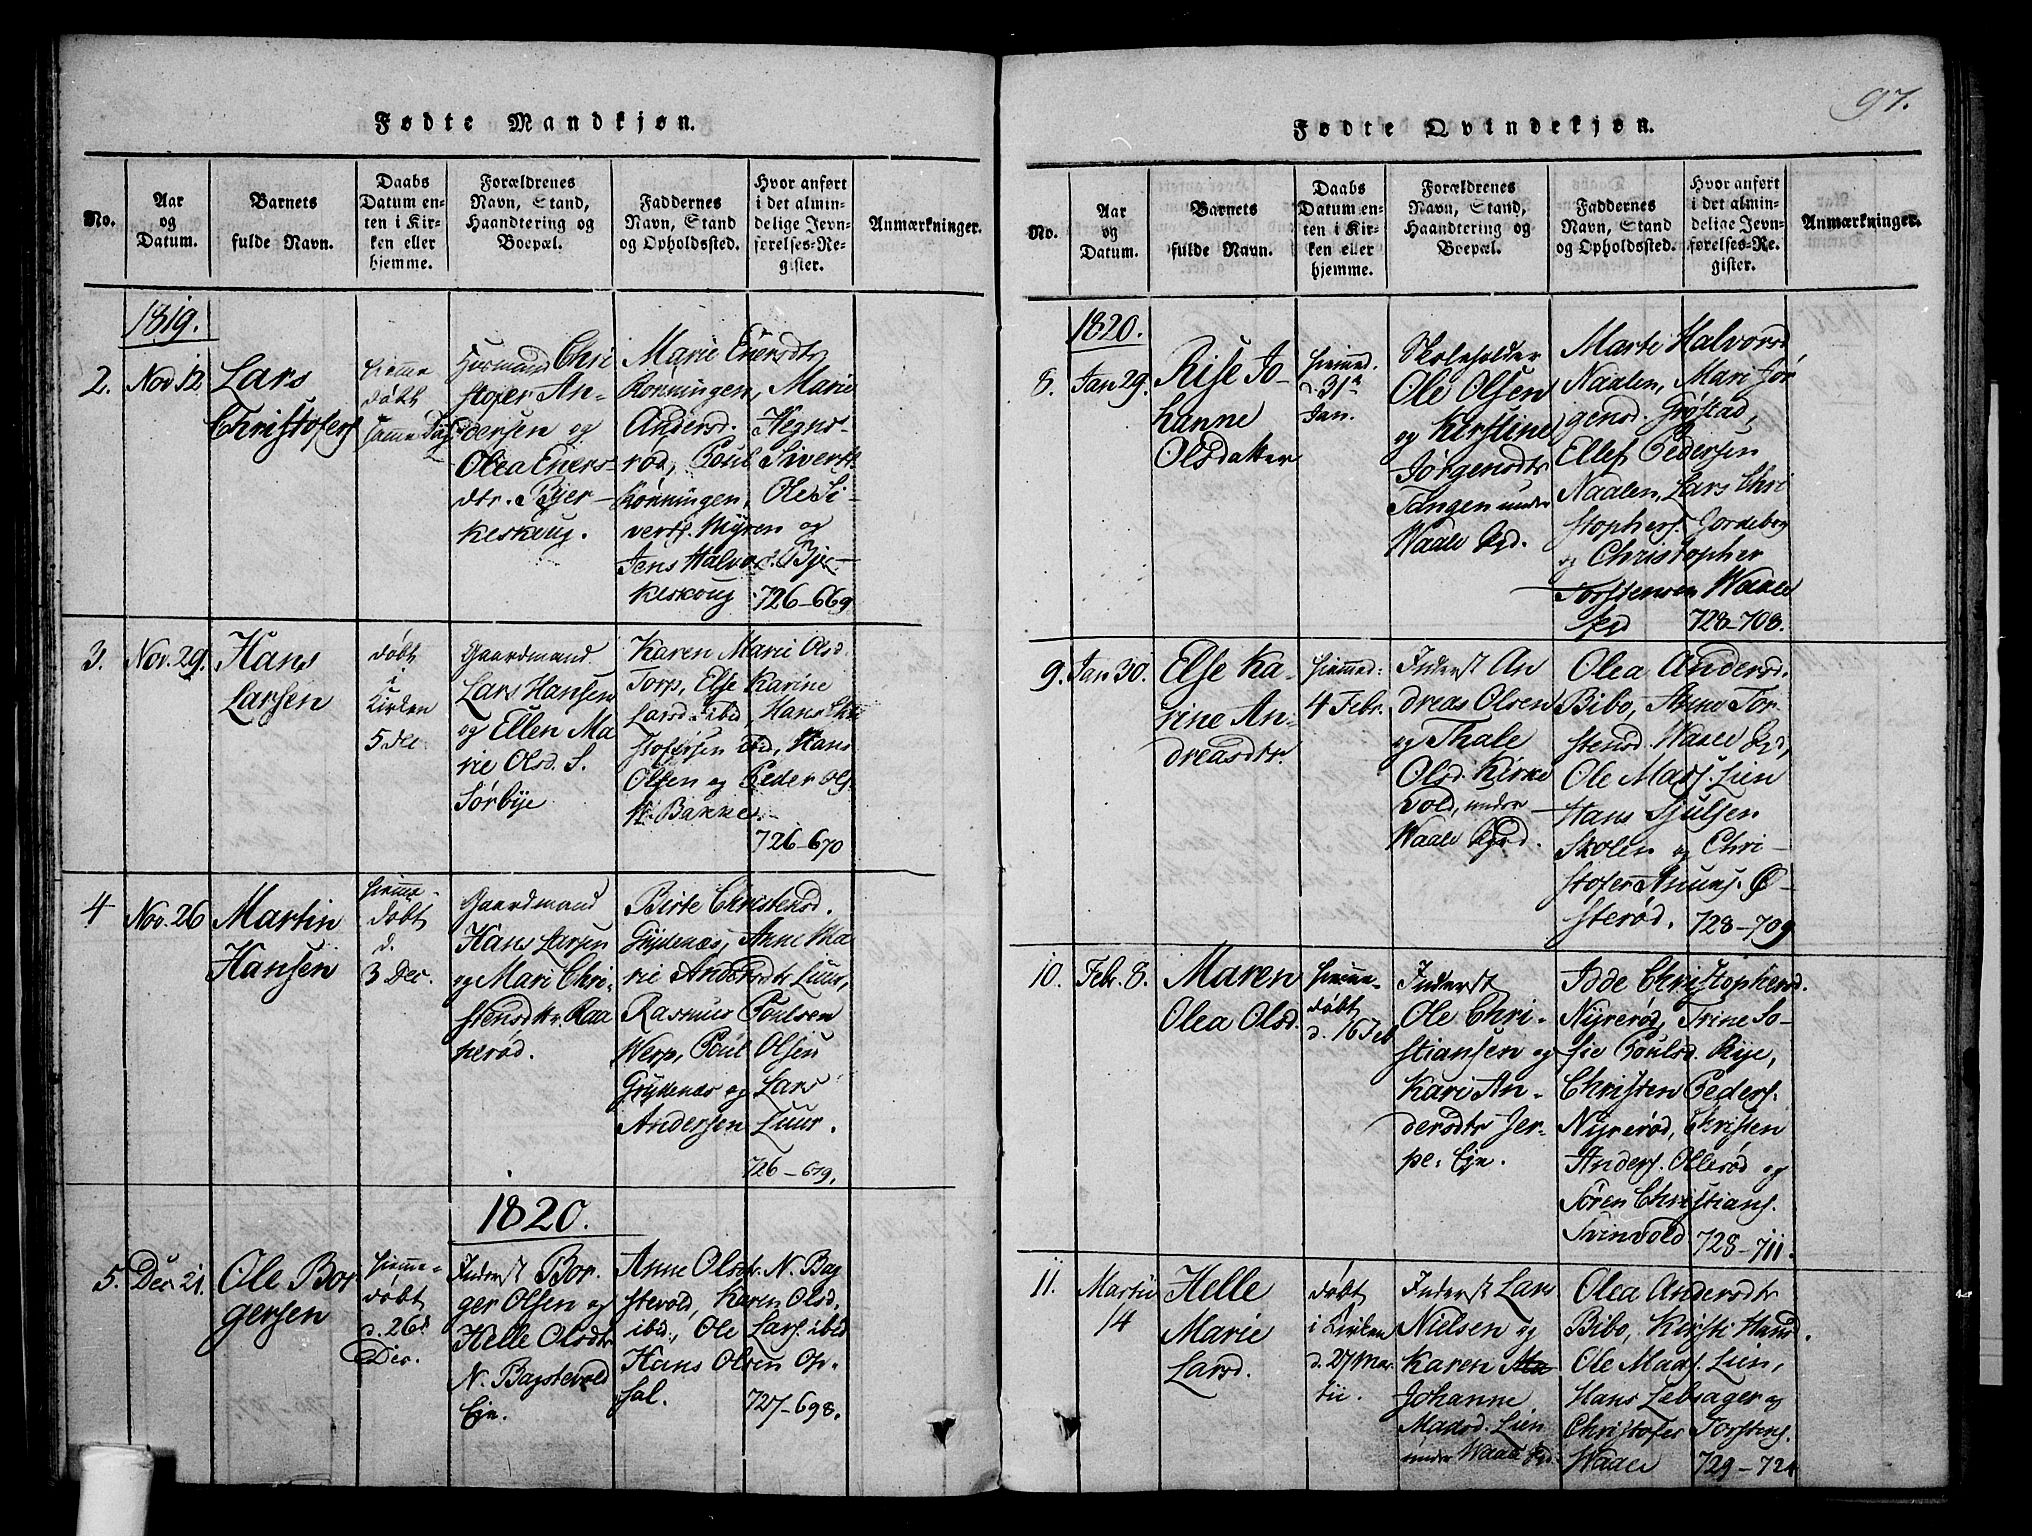 97.
Fødte Mandkjøn.
No.
Aar
og
Datum.
Barnets
fulde Navn.
Daabs
Datum en-
ten i Kir-
ken eller
hjemme.
Forældrenes
Navn, Stand,
Haandtering og
Boepæl.
Faddernes
Navn, Stand
og Opholdssted.
Hvor anført
i det almin-
delige Jevn-
førelses-Re-
gister.
Anmærkninger.
1819.
2.
Nov 12
Lars
Christofers
hiemme
døbt
samme Dag
Chri
stofer An-
dersen og
Olea Eners-
dtr. Bjer-
keskoug.
Marie Enersdtr
Rønningen, Marie
Andersd. Hegns-
rød, Poul Siverts.
Rønningen, Ole Si-
verts. Myren og
Jens Halvors. Bjer-
keskoug 726-669
3.
Nov. 29.
Hans
Larsen
døbt
i
Kirken
5 Dec.
Gaardmand
Lars Hansen
og Ellen Ma
rie Olsd. S.
Sørbye
Karen Marie Olsd.
Torp, Else Karine
Larsd. ibid, Hans Chri
stofersen ibid, Hans
Olsen og Peder Ols.
Bakke.
726-670
4
Nov. 26
Martin
Hansen
hiemme-
døbt
d.
3 Dec.
Gaardmand
Hans Larsen
og Mari Chri-
stensdtr. Raa
kerød.
Birte Christensd.
Grydenæs, Anne Ma
rie Andersdtr Luur,
Rasmus Poulsen
Werp, Poul Olsen
Grydenæs og Lars
Andersen Luur.
726-679.
1820.
5.
Dec. 21.
Ole Bor
gersen
hiemme-
døbt
d. 26d
Dec.
Inderst Bor-
ger Olsen og
Helle Olsdtr
N. Bagstevold
Eje.
Anne Olsdtr. N. Bag
stevold, Karen Olsd.
ibid., Ole Lars. ibid
Hans Olsen Op-
sal.
727-698.
Fødte Qvindekjøn.
No.
Aar
og
Datum.
Barnets
fulde Navn.
Daabs
Datum en-
ten i Kir-
ken eller
hjemme.
Forældrenes
Navn, Stand,
Haandtering og
Boepæl.
Faddernes
Navn, Stand
og Opholdssted.
Hvor anført
i det almin-
delige Jevn-
førelses-Re-
gister.
Anmærkninger.
1820.
8.
Jan 29.
Rise Jo-
hanne
Olsdatter
hiemmed.
d. 31te
Jan.
Skoleholder
Ole Olsen
og Kirstine
Jørgensdtr
Tangen under
Waale
Marte Halvorsd
Naalen, Mari Jør
gensd. Grøstad,
Ellef Pedersen
Naalen, Lars Chri
stophers. Jordebog
og Christopher
Torstensen Waale
728-708.
9.
Jan 30.
Else Ka-
rine An-
dreasdtr.
hiemmed:
4 Febr.
Inderst An
dreas Olsen
og Thale
Olsd. Kirke
vold, under
Waale
Olea Andersd.
Bibo, Anne Tor-
stensd. Waale
Ole Mads. Lien
Hans Sjulsen
Skolen og Chri-
stofer Amunds. Ø-
sterød. 728-709
10.
Febr. 8.
Maren
Olea Olsd.
hiemme-
døbt
d. 16 Feb
Inderst
Ole Chri-
stiansen og
Kari An-
dersdtr Jer-
pe: Eje.
Idde Christophersd.
Nyrerød, Trine So-
fie Poulsd. Rije,
Christen Peders.
Nyrerød, Christen
Anders. Ollerød og
Søren Christians.
Svinevold 728-711.
11.
Martii
14
Helle
Marie
Larsd.
døbt
i Kirken
d. 27 Mar-
tii.
Inderst Lars
Nielsen og
Karen Ma
Johanne
Madsd. Lien
under Waale
Olea Andersdtr
Bibo, Kirsti Hansd.
Ole Mads. Lien,
Hans Lebsager og
Christofer Torstens.
Waale 729-724